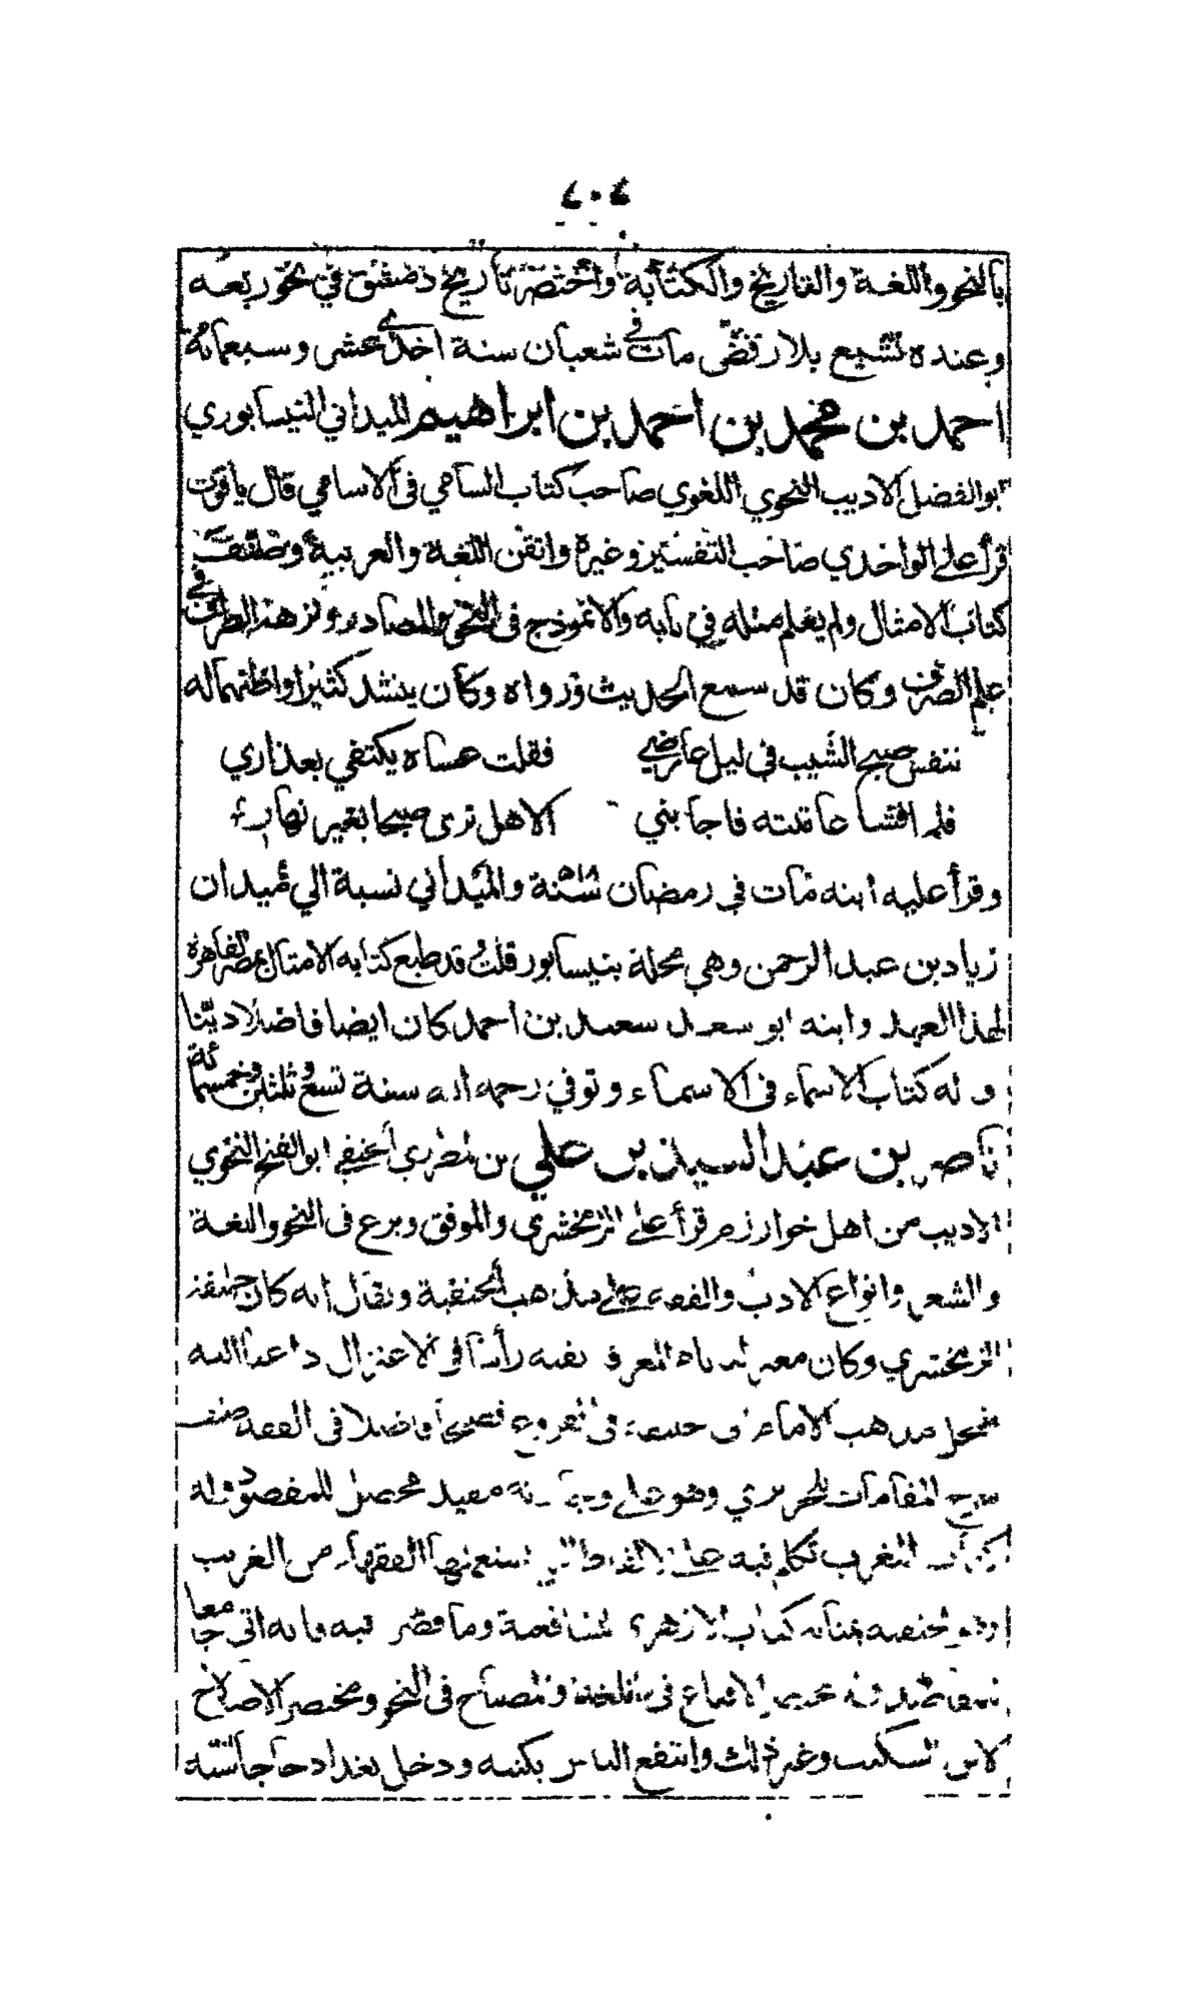 ٤٠٤
بالنحو واللغة والتاريخ والكتابة واختصر تاريخ دمشق في نحو ربعه
وعنده تشيع بلا رفض مات في شعبان سنة احدى عشر وسبعمائة
احمد بن محمد بن احمد بن ابراهيم الميداني النيسابوري
ابو الفضل الاديب النحوي اللغوي صاحب كتاب السامي في الاسامي قال ياقوت
قرأ على الواحدي صاحب التفسير وغيره واتقن اللغة والعربية وصنف
كتاب الامثال ولم يعلم مثله في بابه والانموذج في النحو والمصادر ونزهة الطرف في
علم الصرف وكان قد سمع الحديث ورواه وكان ينشد كثيرا واظنهما له
تنفس صبح الشيب في ليل عارضي فقلت عساه يكتفي بعذاري
فلما فشا عاتبته فاجابني الا هل ترى صبحا بغير نهار
وقرأ عليه ابنه مات في رمضان سنة والميداني نسبة الي ميدان
زياد بن عبد الرحمن وهي محلة بنيسابور قلت وقد طبع كتابه الامثال بمصر القاهرة
لهذا العهد وابنه ابو سعد سعيد بن احمد كان ايضا فاضلا دينا
وله كتاب الاسماء في الاسماء وتوفي رحمه الله سنة تسع وثلثين وخمسمائة
ناصر بن عبد السيد بن علي بن المطرزي الحنفي ابو الفتح النحوي
الاديب من اهل خوارزم قرأ على الزمخشري والموفق وبرع في النحو واللغة
والشعر وانواع الادب والفقه على مذهب الحنفية ويقال انه كان خليفة
الزمخشري وكان معه رأسا في الاعتزال داعيا اليه
ينتحل مذهب الامام ابي حنيفة في الفروع فصيحا فاضلا في الفقه صنف
شرح المقامات للحريري وهو على وجازته مفيد محصل للمقصود وله
كتاب المغرب تكلم فيه على الالفاظ التي يستعملها الفقهاء من الغريب
وهو للحنفية بمثابة كتاب الازهري للشافعية وما قصر فيه فانه اتى جامعا
للمقاصد وله الاقناع في اللغة والمصباح في النحو ومختصر الاصلاح
لابن السكيت وغير ذلك وانتفع الناس بكتبه ودخل بغداد حاجا سنة